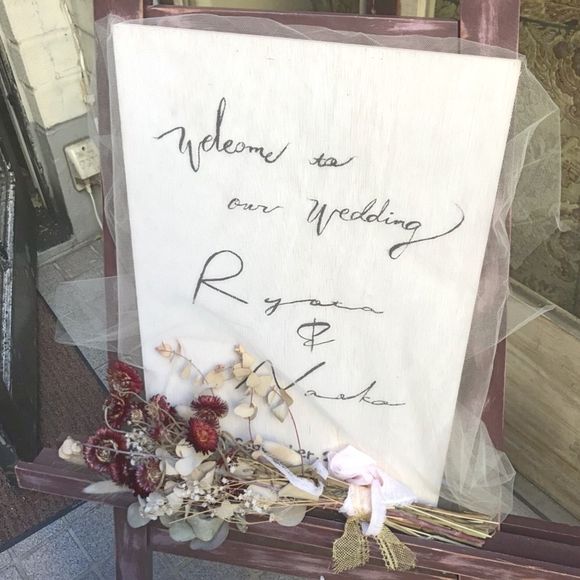 Welcome to
our Wedding
Ryota
&
Naoko